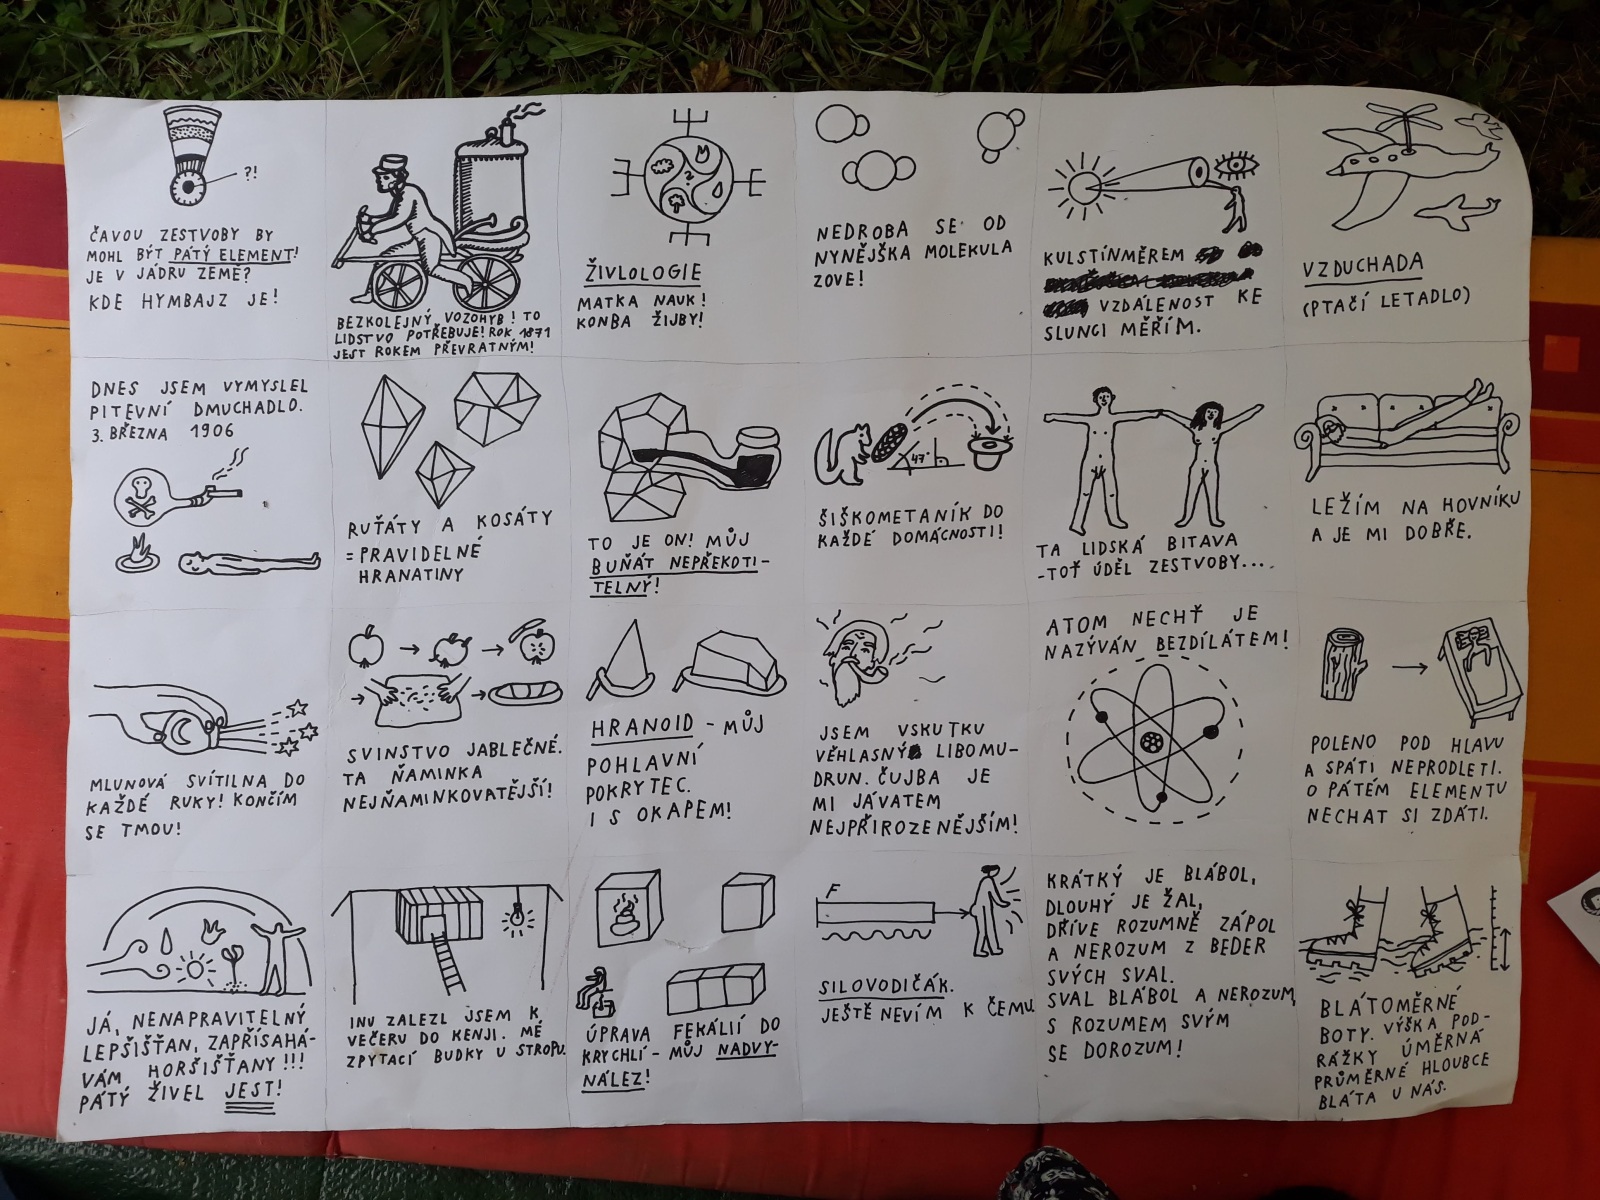 ?!
ČAVOU ZESTVOBY BY
MOHL BÝT PÁTÝ ELEMENT!
JE V JÁDRU ZEMĚ?
KDE HYMBAJZ JE!
BEZKOLEJNÝ VOZOHYB! TO
LIDSTVO POTŘEBUJE! ROK 1871
JEST ROKEM PŘEVRATNÝM!
?
ŽIVLOLOGIE
MATKA NAUK!
KONBA ŽIJBY!
NEDROBA SE OD
NYNĚJŠKA MOLEKULA
ZOVE!
KULSTÍNMĚREM
VZDÁLENOST KE
SLUNCI MĚŘÍM.
VZDUCHADA
(PTAČÍ LETADLO)
DNES JSEM VYMYSLEL
PITEVNÍ DMUCHADLO.
3. BŘEZNA 1906
RUŤÁTY A KOSÁTY
= PRAVIDELNÉ
HRANATINY
TO JE ON! MŮJ
BUŇÁT NEPŘEKOTI-
TELNÝ!
47°
ŠIŠKOMETANÍK DO
KAŽDÉ DOMÁCNOSTI!
TA LIDSKÁ BITAVA
-TOŤ ÚDĚL ZESTVOBY...
LEŽÍM NA HOVNÍKU
A JE MI DOBŘE.
MLUNOVÁ SVÍTILNA DO
KAŽDÉ RUKY! KONČÍM
SE TMOU!
SVINSTVO JABLEČNÉ.
TA ŇAMINKA
NEJŇAMINKOVATĚJŠÍ!
HRANOID - MŮJ
POHLAVNÍ
POKRYTEC.
I S OKAPEM!
JSEM VSKUTKU
VĚHLASNÝ LIBOMU-
DRUN. ČUJBA JE
MI JÁVATEM
NEJPŘIROZENĚJŠÍM!
ATOM NECHŤ JE
NAZÝVÁN BEZDÍLÁTEM!
POLENO POD HLAVU
A SPÁTI NEPRODLETI.
O PÁTÉM ELEMENTU
NECHAT SI ZDÁTI.
JÁ, NENAPRAVITELNÝ
LEPŠIŠŤAN, ZAPŘÍSAHÁ-
VÁM HORŠIŠŤANY!!!
PÁTÝ ŽIVEL JEST!
INU ZALEZL JSEM K
VEČERU DO KENJI. MÉ
ZPYTACÍ BUDKY U STROPU.
ÚPRAVA FEKÁLIÍ DO
KRYCHLÍ - MŮJ NADVY-
NÁLEZ!
F
SILOVODIČÁK.
JEŠTĚ NEVÍM K ČEMU
KRÁTKÝ JE BLÁBOL,
DLOUHÝ JE ŽAL,
DŘÍVE ROZUMNĚ ZÁPOL
A NEROZUM Z BEDER
SVÝCH SVAL.
SVAL BLÁBOL A NEROZUM,
S ROZUMEM SVÝM
SE DOROZUM!
BLÁTOMĚRNÉ
BOTY. VÝŠKA POD-
RÁŽKY ÚMĚRNÁ
PRŮMĚRNÉ HLOUBCE
BLÁTA U NÁS.